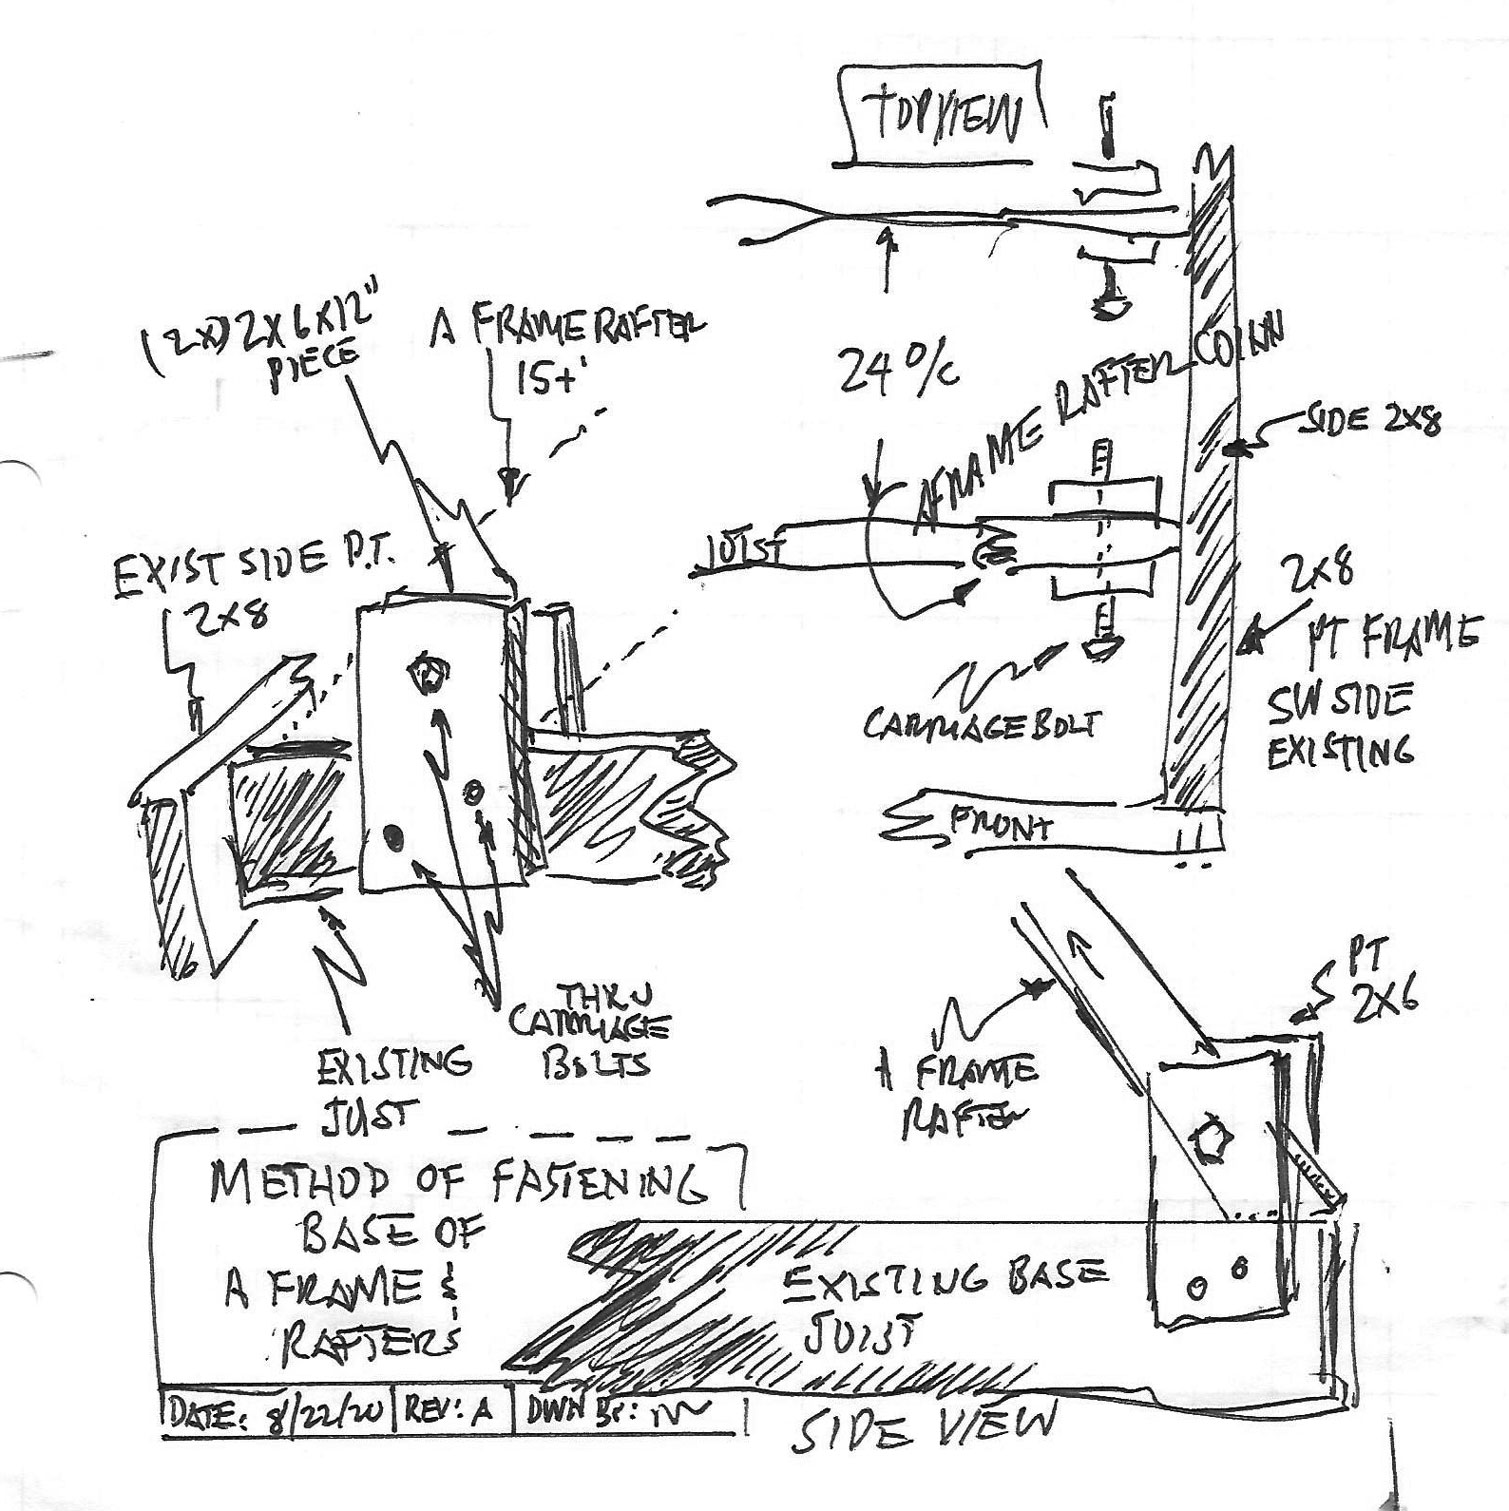 TOP VIEW
(2X) 2X6X12"
PIECE
A FRAME RAFTER
15+'
24 O/C
AFRAME RAFTER CONN
SIDE 2X8
JOIST
EXIST SIDE P.T.
2X8
2X8
PT FRAME
SW SIDE
EXISTING
CARRIAGE BOLT
FRONT
THRU
CARRIAGE
BOLTS
EXISTING
JUST
PT
2X6
A FRAME
RAFTER
METHOD OF FASTENING
BASE OF
A FRAME &
RAFTERS
EXISTING BASE
JOIST
DATE: 8/22/20 REV: A DWN BY:
SIDE VIEW